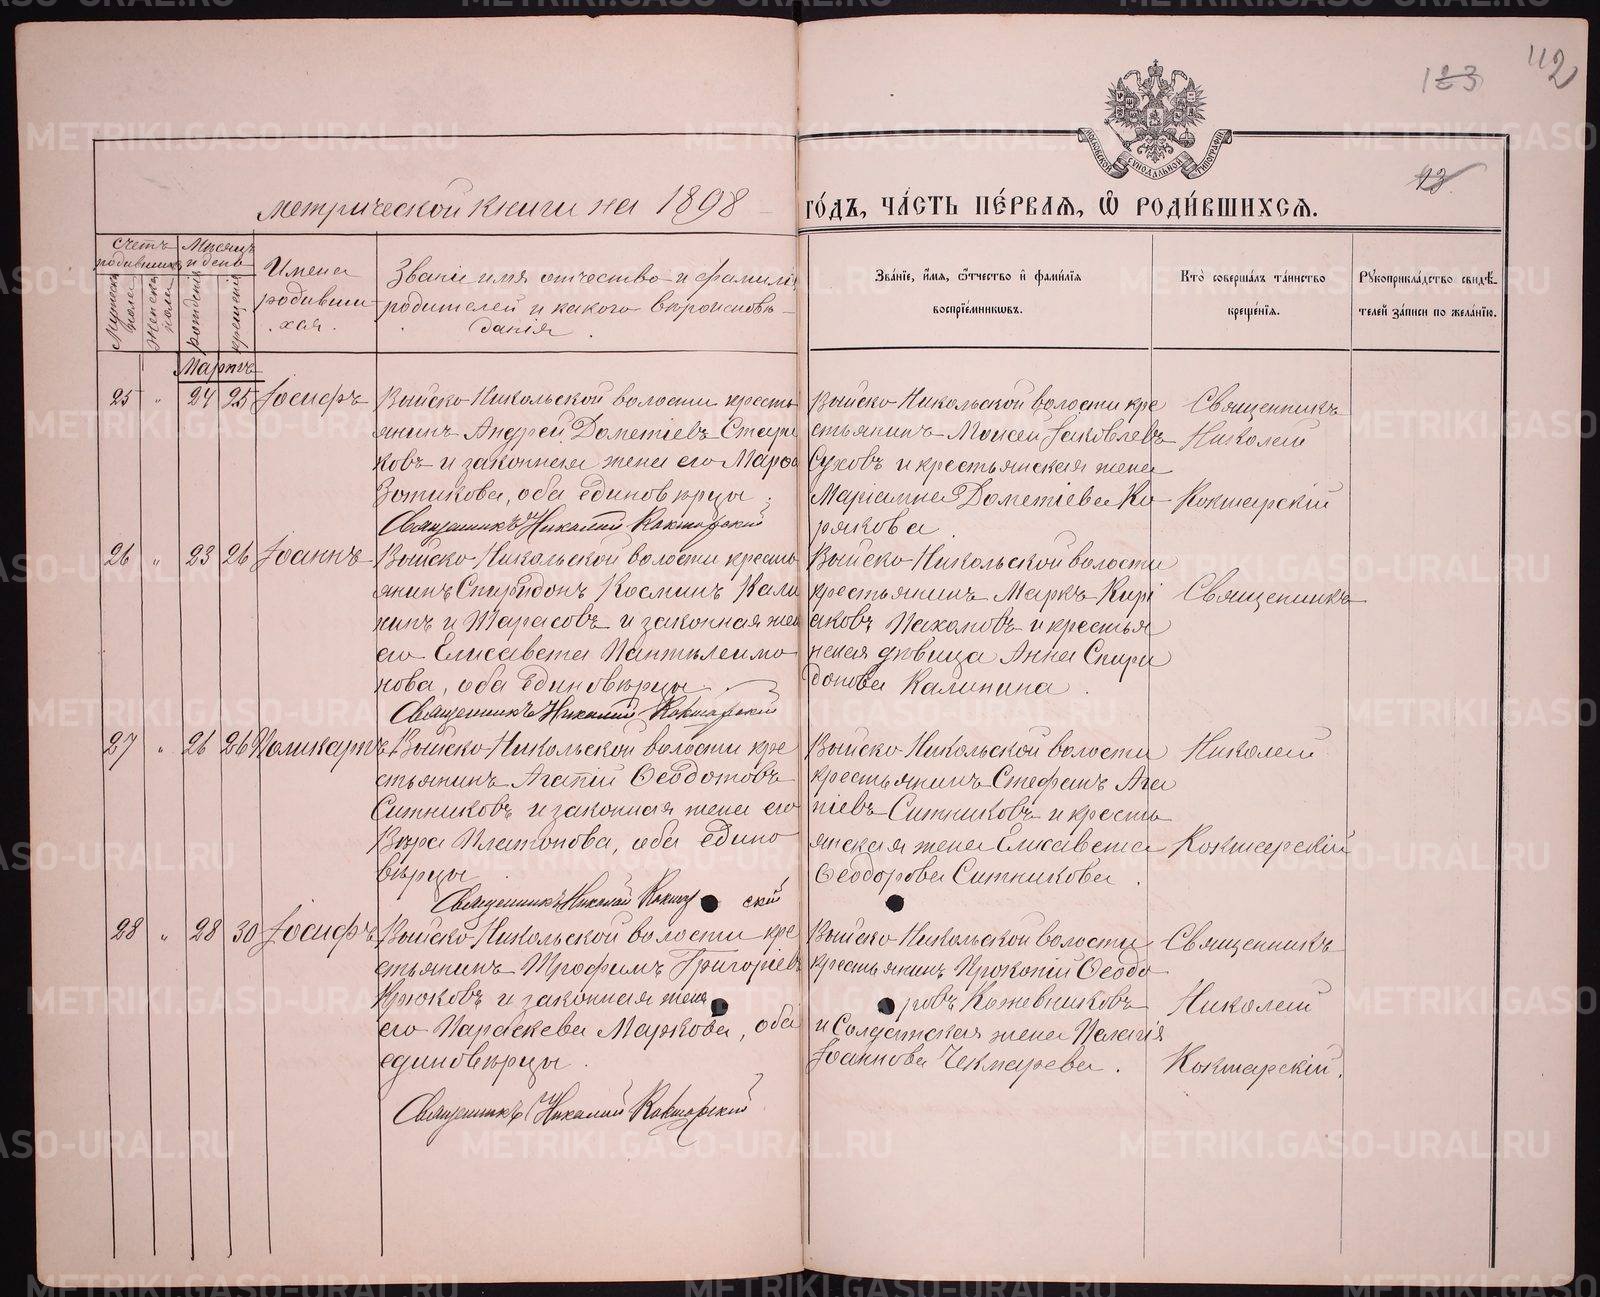 183
112
МОСКОВСКОЙ СѴНОДАЛЬНОЙ ТИПОГРАФІИ
93
метрической книги на 1898
ГО́ДЪ, ЧА́СТЬ ПЕ́РВАЯ, Ѽ РОДИ́ВШИХСЯ.
Счетъ родившихся
Мужеска пола
Женска пола
Мѣсяцъ и день
рожденія
крещенія
Имена
родивши
хся.
Званіе имя отчество и фамилія
родителей и какого вѣроисповѣ-
данія.
Зва́нїе, и҆́мѧ, ѻ҆́тчество и҆ фами́лїѧ
воспрїе́мникѡвъ.
Кто̀ соверша́лъ та́инство
креще́нїѧ.
Рꙋкоприкла́дство свидѣ́-
телей за́писи по жела́нїю.
Мартъ
25 „ 24 25 Іосифъ
Выйско-Никольской волости кресть
янинъ Андрей Дометіевъ Стари
ковъ и законная жена его Марѳа
Зотикова, оба единовѣрцы.
Священникъ Николай Кокшарскій
Выйско-Никольской волости кре
стьянинъ Моисей Іаковлевъ
Суховъ и крестьянская жена
Маріамна Дометіева Ко-
рякова.
Священникъ
Николай
Кокшарскій
26 „ 23 26 Іоаннъ
Выйско-Никольской волости кресть
янинъ Спиридонъ Косминъ Кали
нинъ и Тарасовъ и законная жена
его Елисавета Пантелеимо
нова, оба единовѣрцы.
Священникъ Николай Кокшарскій
Выйско-Никольской волости
крестьянинъ Маркъ Кирі
аковъ Пахомовъ и крестья
нская дѣвица Анна Спири
донова Калинина.
Священникъ
27 „ 26 26 Поликарпъ
Выйско-Никольской волости кре
стьянинъ Агапій Ѳеодотовъ
Ситниковъ и законная жена его
Вѣра Платонова, оба едино
вѣрцы.
Священникъ Николай Кокшарскій
Выйско-Никольской волости
крестьянинъ Стефанъ Ага
піевъ Ситниковъ и кресть
янская жена Елисавета
Ѳеодорова Ситникова.
Николай
Кокшарскій
28 „ 28 30 Іосифъ
Выйско-Никольской волости кре
стьянинъ Трофимъ Григоріевъ
Крюковъ и законная жена
его Параскева Маркова, оба
единовѣрцы.
Священникъ Николай Кокшарскій
Выйско-Никольской волости
крестьянинъ Прокопій Ѳеодо
ровъ Кожевниковъ
и Солдатская жена Пелагія
Іоаннова Чекмарева.
Священникъ
Николай
Кокшарскій.
METRIKI.GASO-URAL.RU